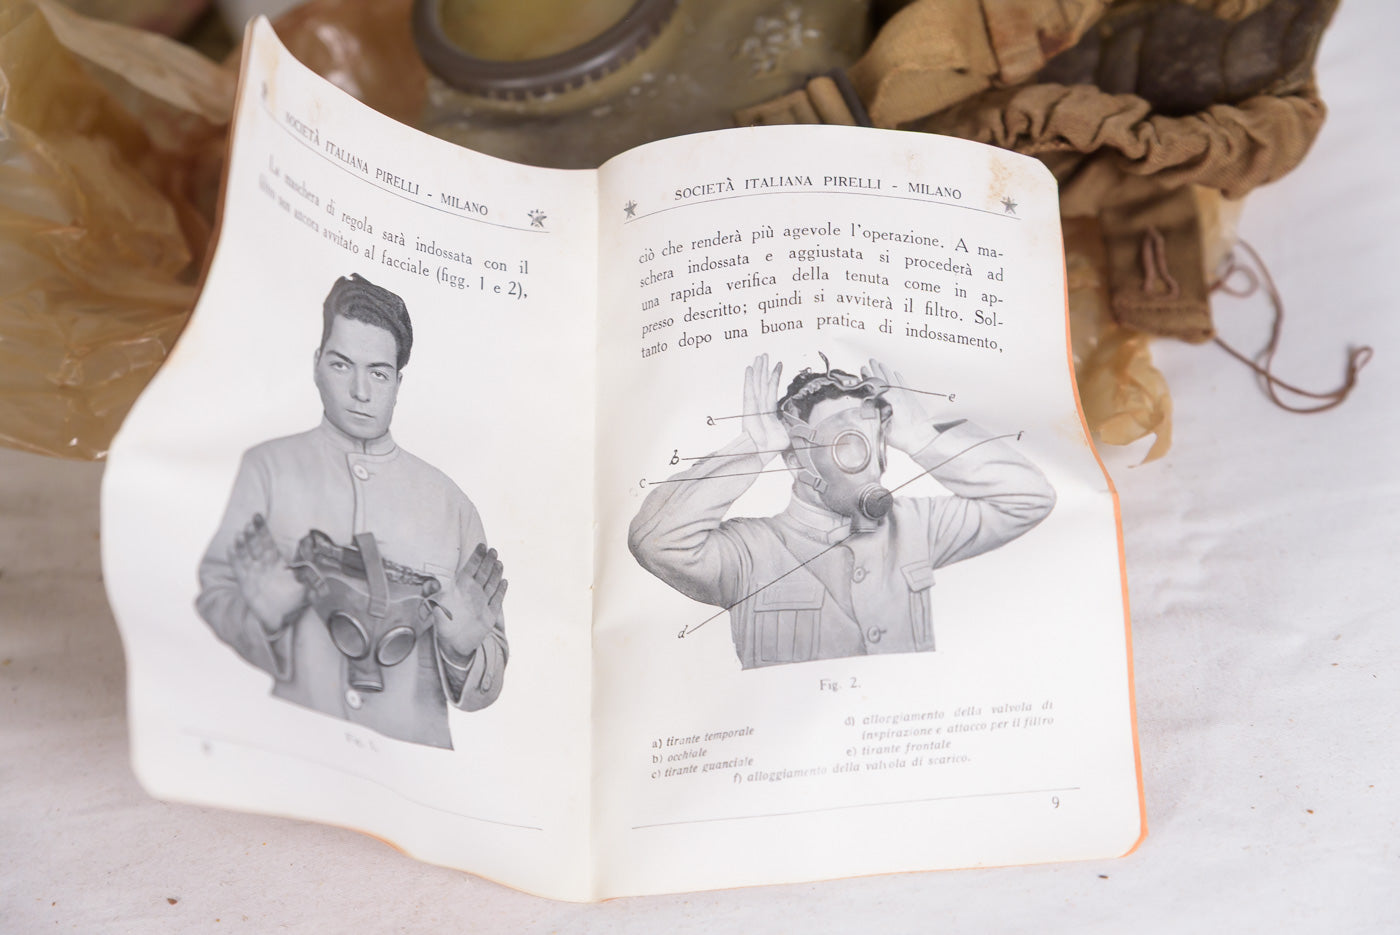 SOCIETÀ ITALIANA PIRELLI - MILANO
La maschera di regola sarà indossata con il
filtro non ancora avvitato al facciale (figg. 1 e 2),
Fig. 1.
8
SOCIETÀ ITALIANA PIRELLI - MILANO
ciò che renderà più agevole l'operazione. A ma-
schera indossata e aggiustata si procederà ad
una rapida verifica della tenuta come in ap-
presso descritto; quindi si avviterà il filtro. Sol-
tanto dopo una buona pratica di indossamento,
a
b
c
d
e
f
Fig. 2.
a) tirante temporale
b) occhiale
c) tirante guanciale
d) allorgiamento della valvola di
inspirazione e attacco per il filtro
e) tirante frontale
f) alloggiamento della valvola di scarico.
9